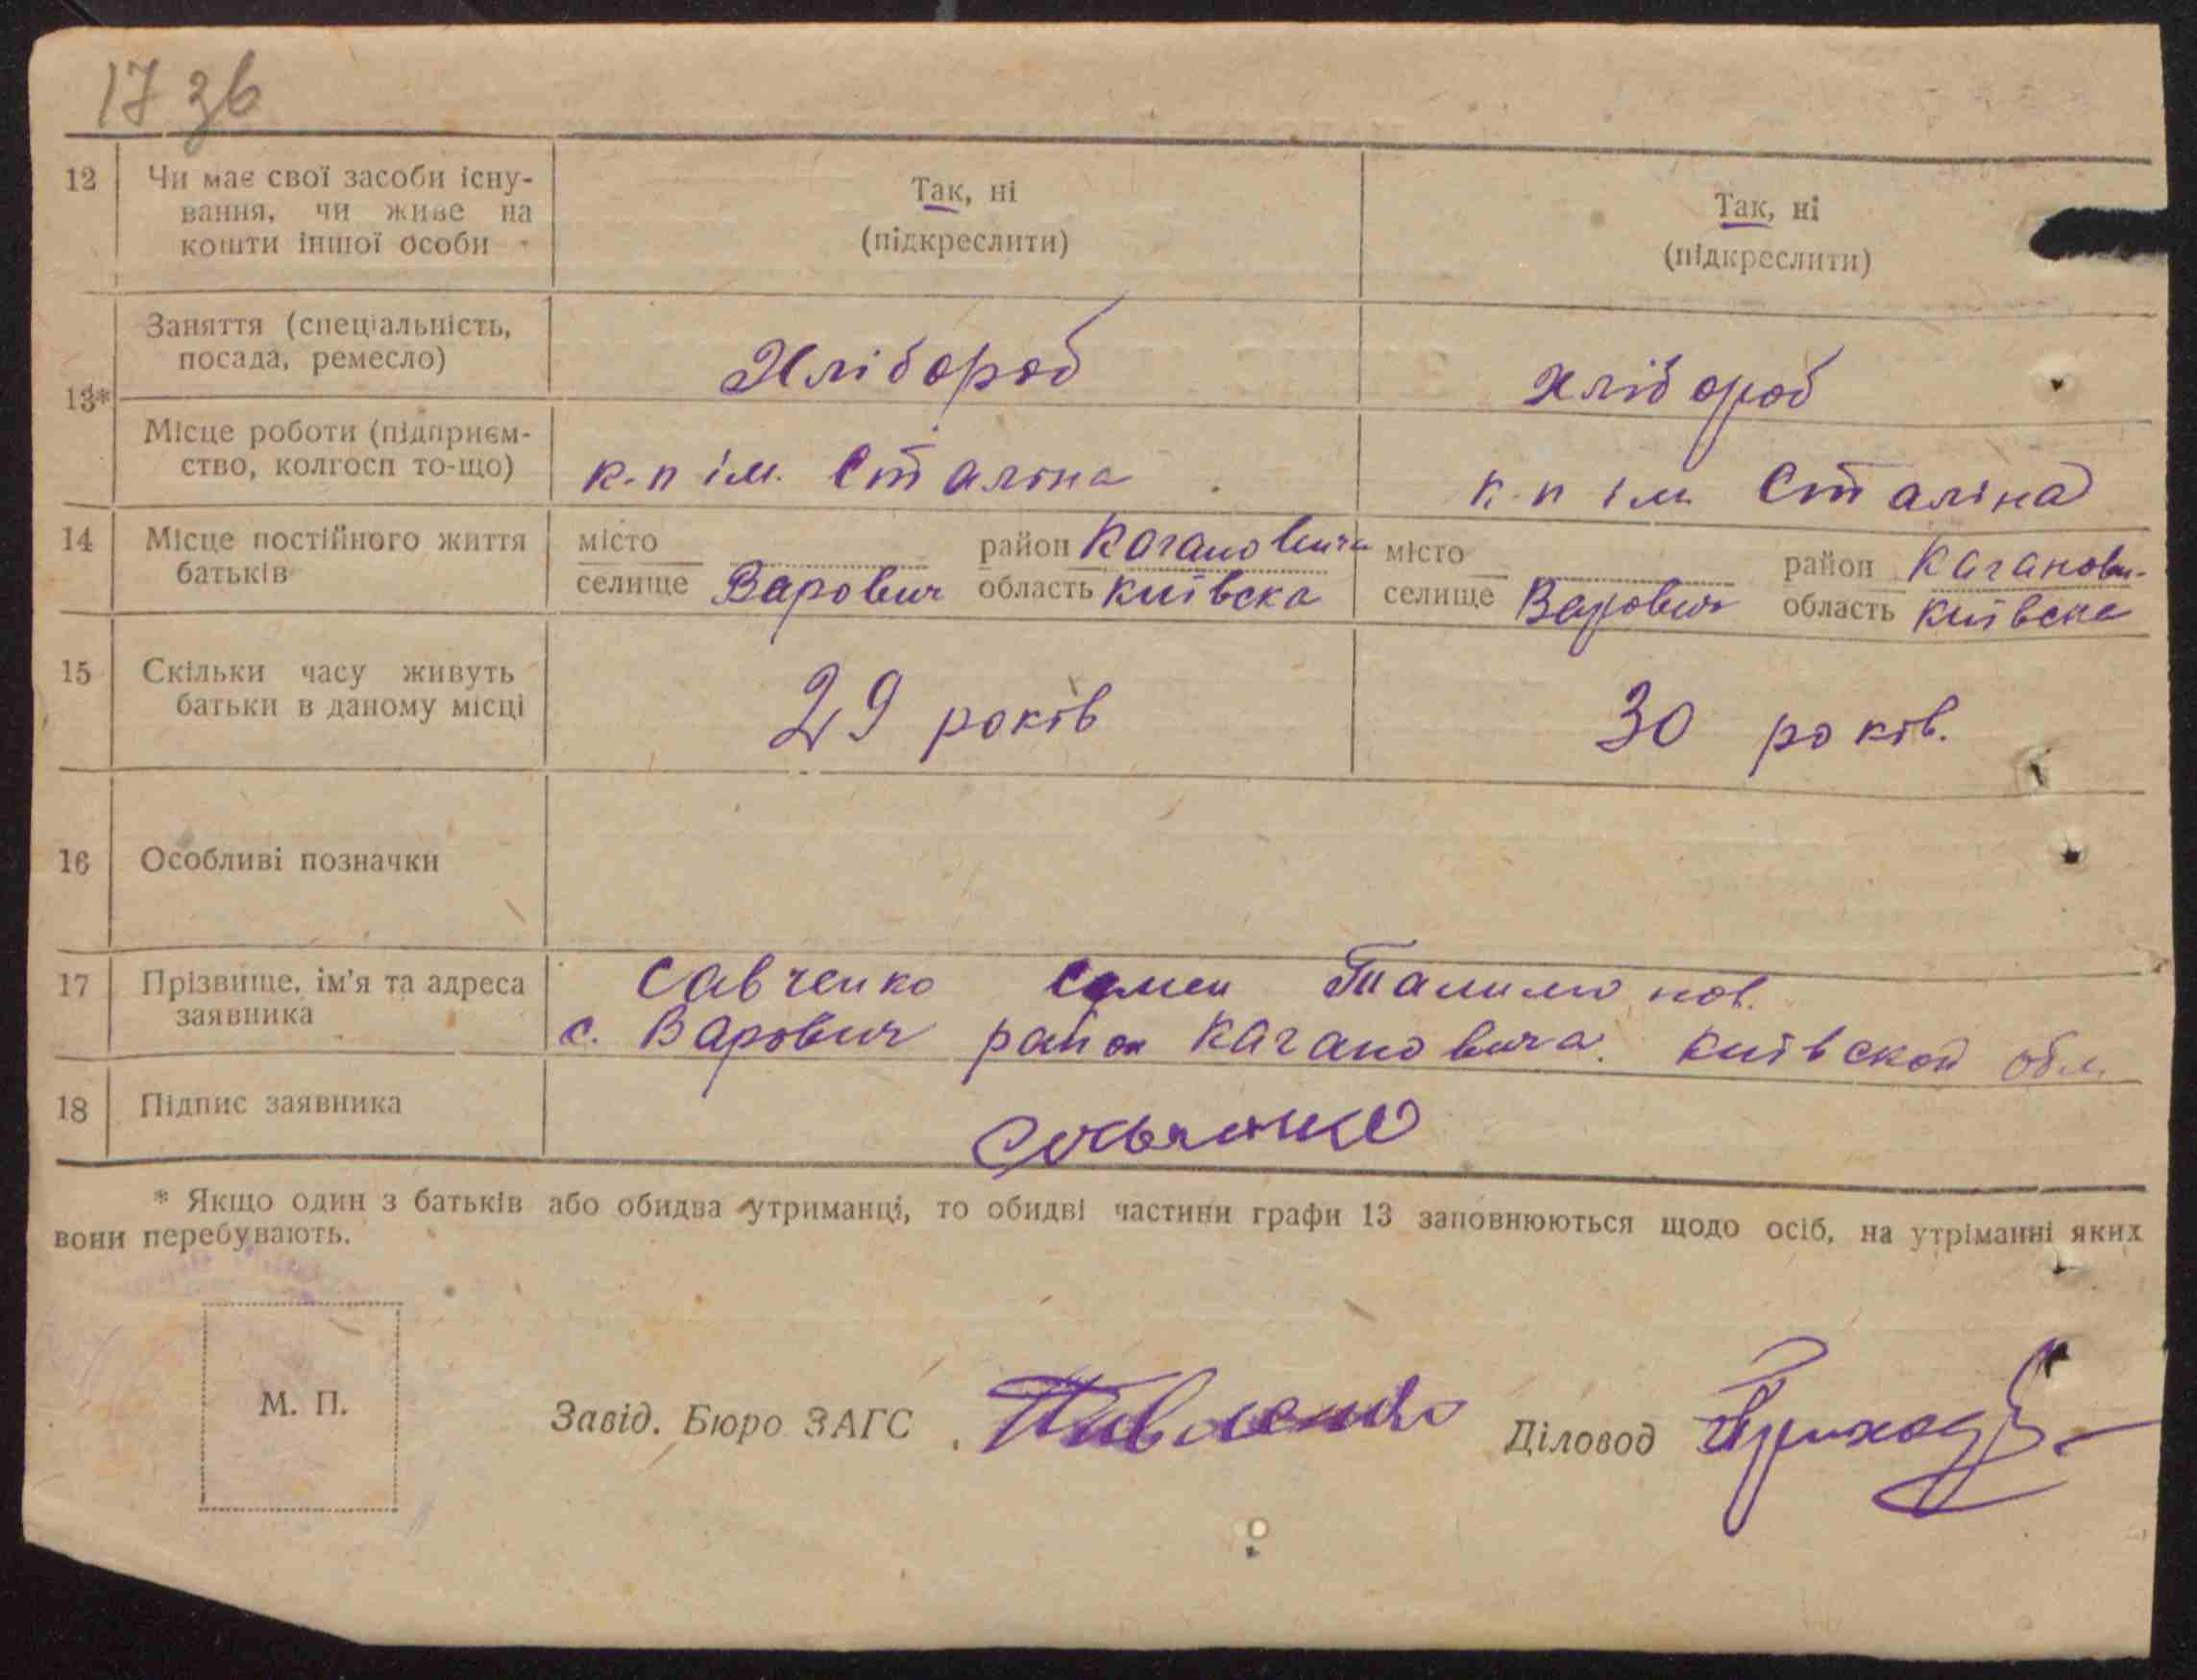 17 зв
12 Чи має свої засоби існу-
вання, чи живе на
кошти іншої особи
Так, ні
(підкреслити)
Так, ні
(підкреслити)
13*
Заняття (спеціальність,
посада, ремесло)
Хлібороб
хлібороб
Місце роботи (підприєм-
ство, колгосп то-що)
к-п ім. Сталіна
к-п ім Сталіна
14 Місце постійного життя
батьків
місто район Кагановича
селище Варович область Київска
місто район Каганови-
селище Варович область Київска
15 Скільки часу живуть
батьки в даному місці
29 років
30 років.
16 Особливі позначки
17 Прізвище, ім'я та адреса
заявника
Савченко Семен
с. Варович район Кагановича. Київской обл.
18 Підпис заявника
Савченко
* Якщо один з батьків або обидва утриманці, то обидві частини графи 13 заповнюються щодо осіб, на утріманні яких
вони перебувають.
М. П.
Завід. Бюро ЗАГС Павленко Діловод